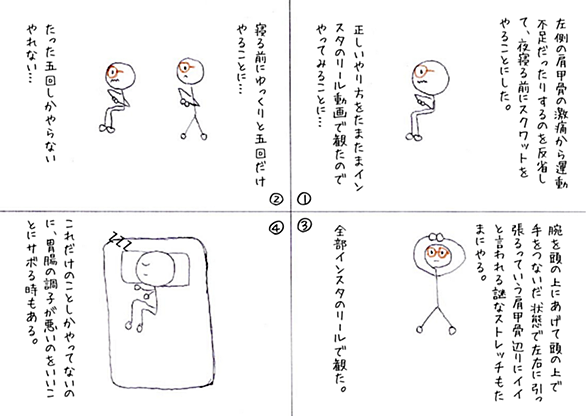 左側の肩甲骨の激痛から運動
不足だったりするのを反省し
て、夜寝る前にスクワットを
やることにした。
正しいやり方をたまたまイン
スタのリール動画で観たので
やってみることに…
①
寝る前にゆっくりと五回だけ
やることに…
たった五回しかやらない
やれない…
②
腕を頭の上にあげて頭の上で
手をつないだ状態で左右に引っ
張るっていう肩甲骨辺りにイイ
と言われる謎なストレッチもた
まにやる。
全部インスタのリールで観た。
③
これだけのことしかやってないの
に、胃腸の調子が悪いのをいいこ
とにサボる時もある。
④
zzz